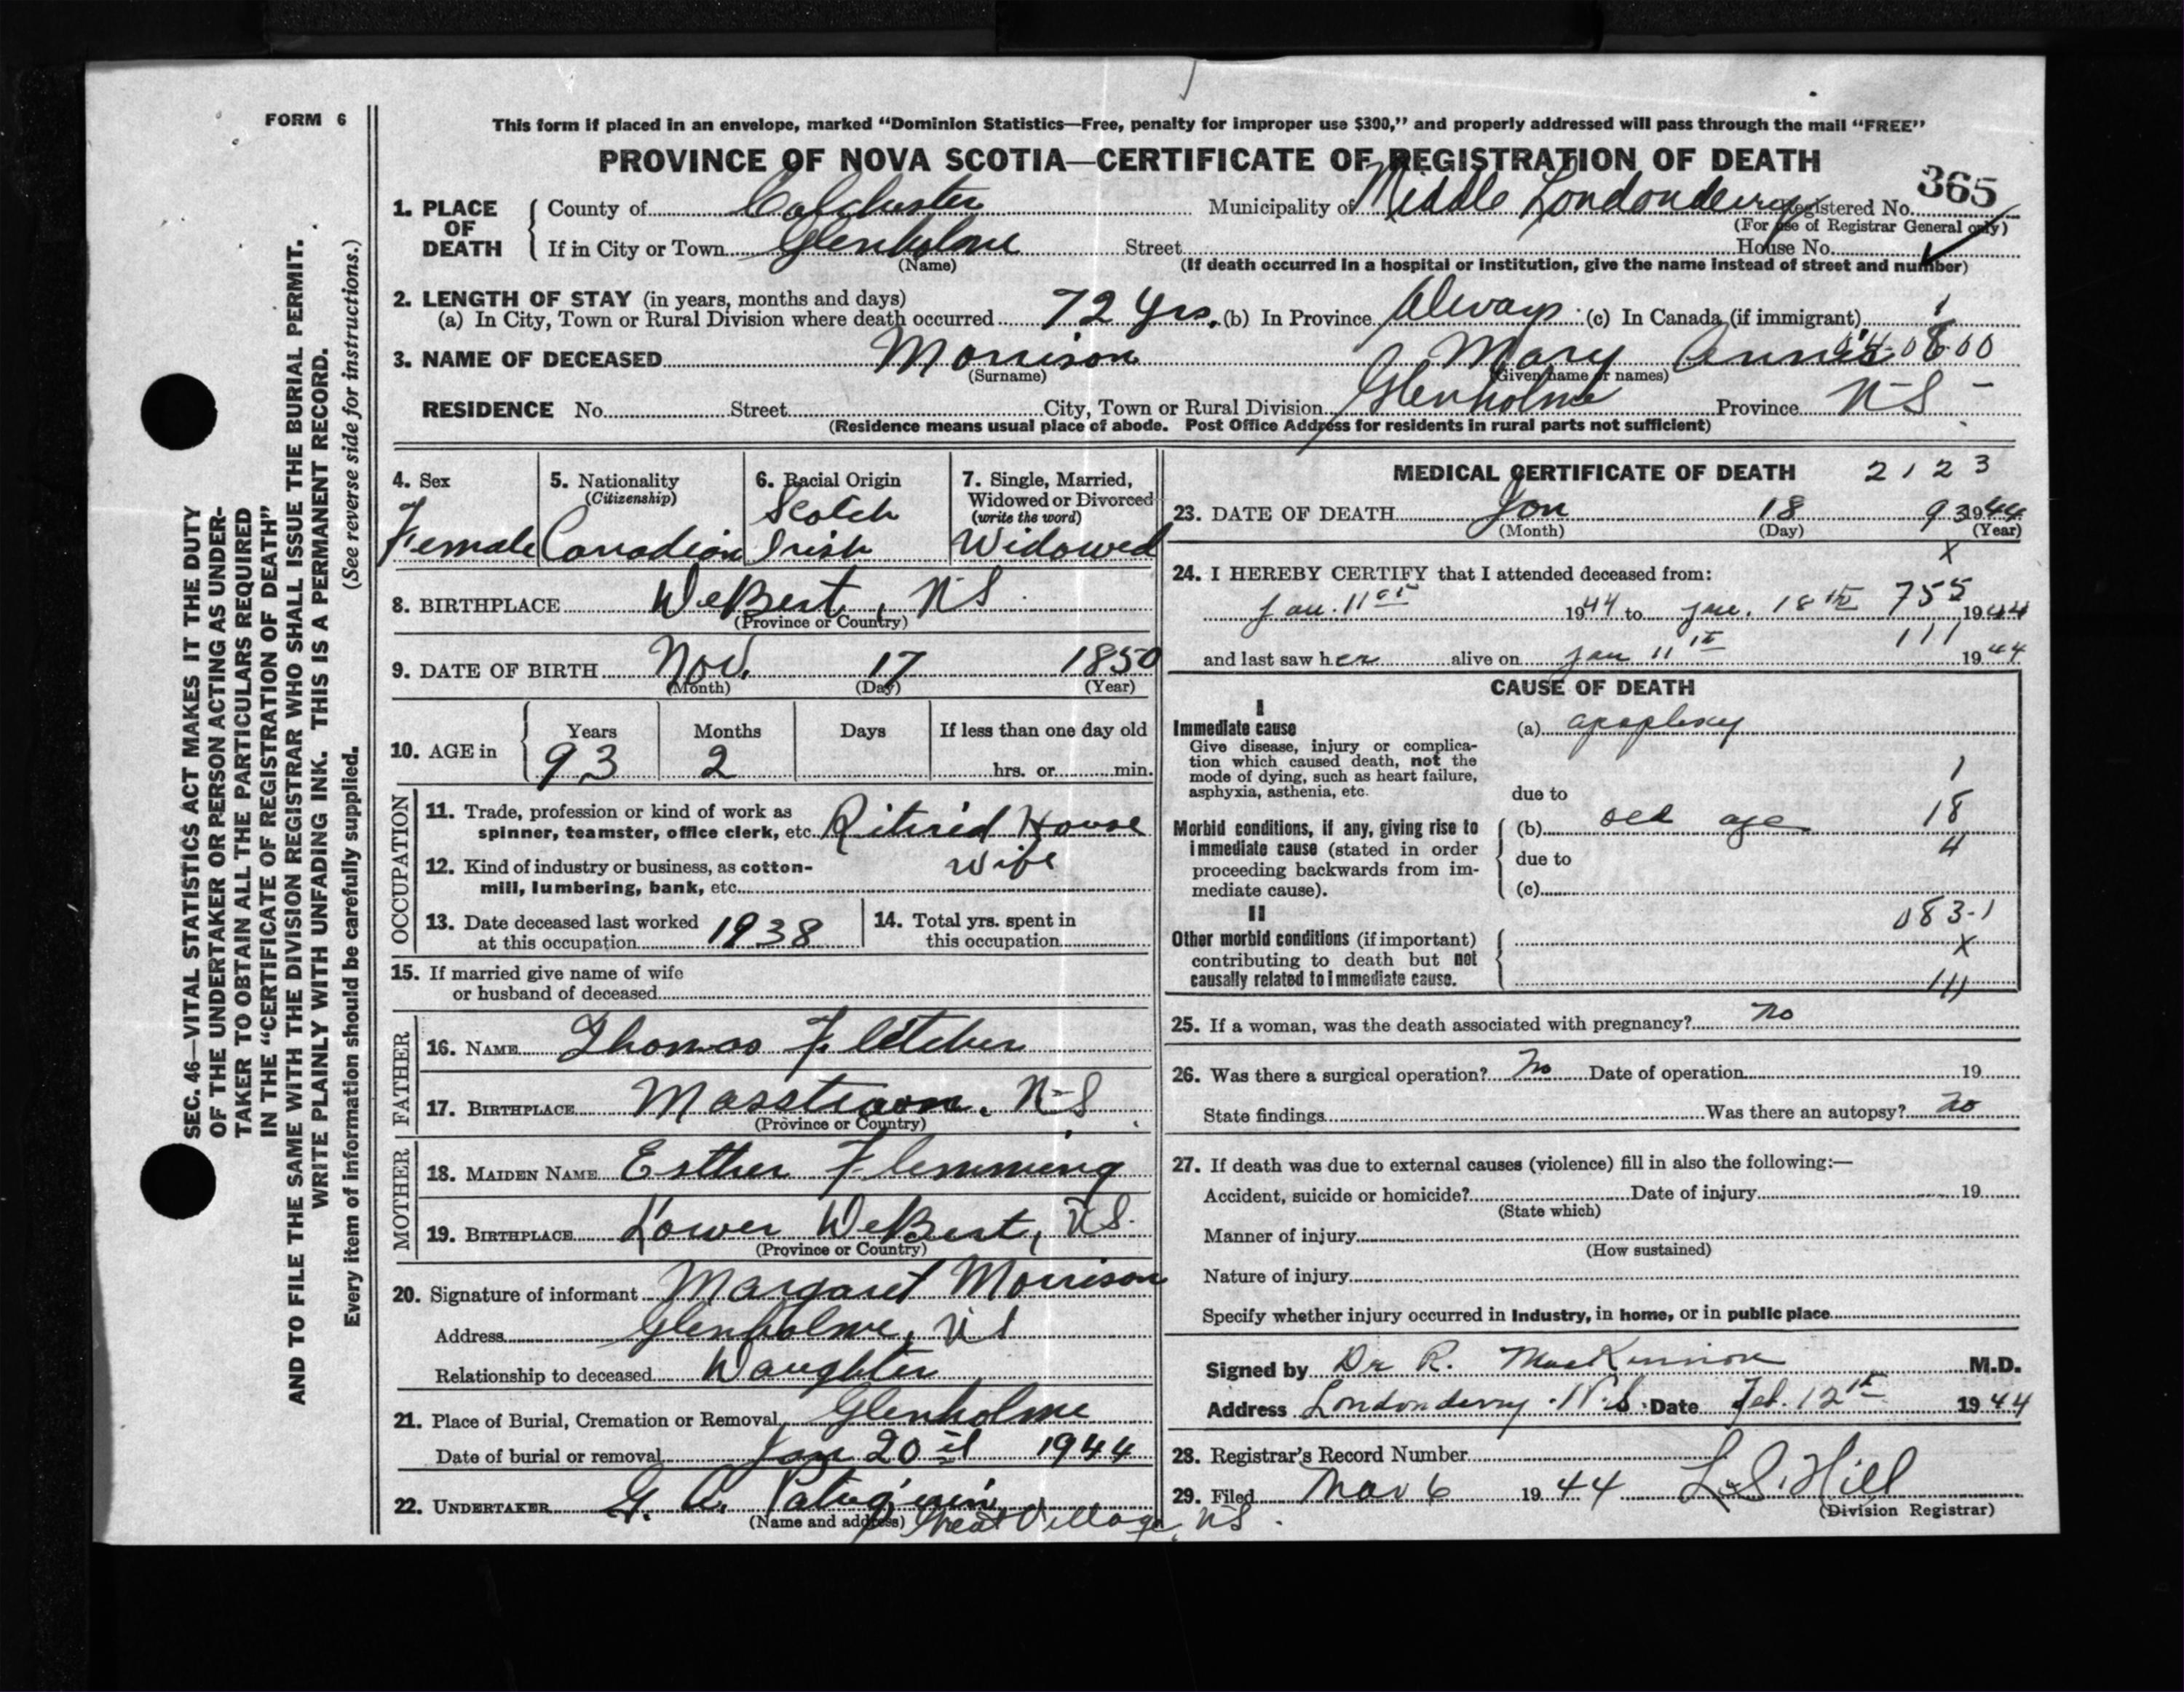 FORM 6
This form if placed in an envelope, marked "Dominion Statistics—Free, penalty for improper use $300," and properly addressed will pass through the mail "FREE"
PROVINCE OF NOVA SCOTIA—CERTIFICATE OF REGISTRATION OF DEATH
365
1. PLACE OF DEATH County of Colchester Municipality of Middle Londonderry Registered No.
(For use of Registrar General only)
If in City or Town Glenholme Street House No.
(Name) (If death occurred in a hospital or institution, give the name instead of street and number)
2. LENGTH OF STAY (in years, months and days)
(a) In City, Town or Rural Division where death occurred 72 Yrs. (b) In Province Always (c) In Canada (if immigrant)
3. NAME OF DECEASED Morrison Mary Annie
(Surname) (Given name or names)
RESIDENCE No. Street City, Town or Rural Division Glenholme Province N-S-
(Residence means usual place of abode. Post Office Address for residents in rural parts not sufficient)
4. Sex Female
5. Nationality (Citizenship) Canadian
6. Racial Origin Scotch Irish
7. Single, Married, Widowed or Divorced (write the word) Widowed
8. BIRTHPLACE DeBert, NS
(Province or Country)
9. DATE OF BIRTH Nov. 17 1850
(Month) (Day) (Year)
10. AGE in Years 93 Months 2 Days If less than one day old hrs. or min.
OCCUPATION
11. Trade, profession or kind of work as spinner, teamster, office clerk, etc. Ritired House
12. Kind of industry or business, as cotton-mill, lumbering, bank, etc. Wife
13. Date deceased last worked at this occupation 1938
14. Total yrs. spent in this occupation
15. If married give name of wife or husband of deceased
FATHER
16. NAME Thomas Fletcher
17. BIRTHPLACE Masstown. N-S
(Province or Country)
MOTHER
18. MAIDEN NAME Esther Flemming
19. BIRTHPLACE Lower DeBert, NS.
(Province or Country)
20. Signature of informant Margaret Morrison
Address Glenholme, NS
Relationship to deceased Daughter
21. Place of Burial, Cremation or Removal Glenholme
Date of burial or removal Jan 20 1944
22. UNDERTAKER G. A.
(Name and address) Great Village, NS.
MEDICAL CERTIFICATE OF DEATH 2123
23. DATE OF DEATH Jan 18 93 1944
(Month) (Day) (Year)
X
24. I HEREBY CERTIFY that I attended deceased from:
Jan. 11 1944 to Jan. 18th 755 1944
111
and last saw her alive on Jan 11 1944
CAUSE OF DEATH
I
Immediate cause (a) apoplexy
Give disease, injury or complication which caused death, not the mode of dying, such as heart failure, asphyxia, asthenia, etc.
1
due to
Morbid conditions, if any, giving rise to immediate cause (stated in order proceeding backwards from immediate cause).
(b) old age 18
due to 4
(c)
083-1
II
Other morbid conditions (if important) contributing to death but not causally related to immediate cause.
X
111
25. If a woman, was the death associated with pregnancy? no
26. Was there a surgical operation? No Date of operation 19
State findings Was there an autopsy? no
27. If death was due to external causes (violence) fill in also the following:—
Accident, suicide or homicide? Date of injury 19
(State which)
Manner of injury
(How sustained)
Nature of injury
Specify whether injury occurred in industry, in home, or in public place
Signed by Dr R. MacKinnon M.D.
Address Londonderry N.S. Date Feb. 12 1944
28. Registrar's Record Number
29. Filed Mar 6 1944 L.S. Hill
(Division Registrar)
SEC. 46—VITAL STATISTICS ACT MAKES IT THE DUTY
OF THE UNDERTAKER OR PERSON ACTING AS UNDER-
TAKER TO OBTAIN ALL THE PARTICULARS REQUIRED
IN THE "CERTIFICATE OF REGISTRATION OF DEATH"
AND TO FILE THE SAME WITH THE DIVISION REGISTRAR WHO SHALL ISSUE THE BURIAL PERMIT.
WRITE PLAINLY WITH UNFADING INK. THIS IS A PERMANENT RECORD.
Every item of information should be carefully supplied. (See reverse side for instructions.)